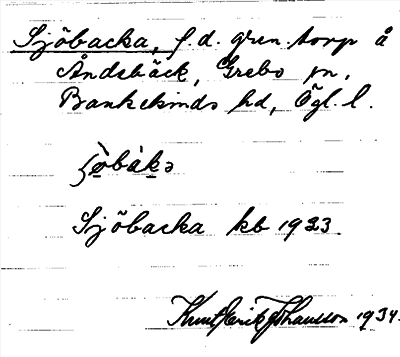 Sjöbacka, f.d. gren. torp å
Åndebäck, Grebo sn,
Bankekinds hd, Ögl. l.
Sjöbacka kb 1923.
Knut Erik Johansson 1934.